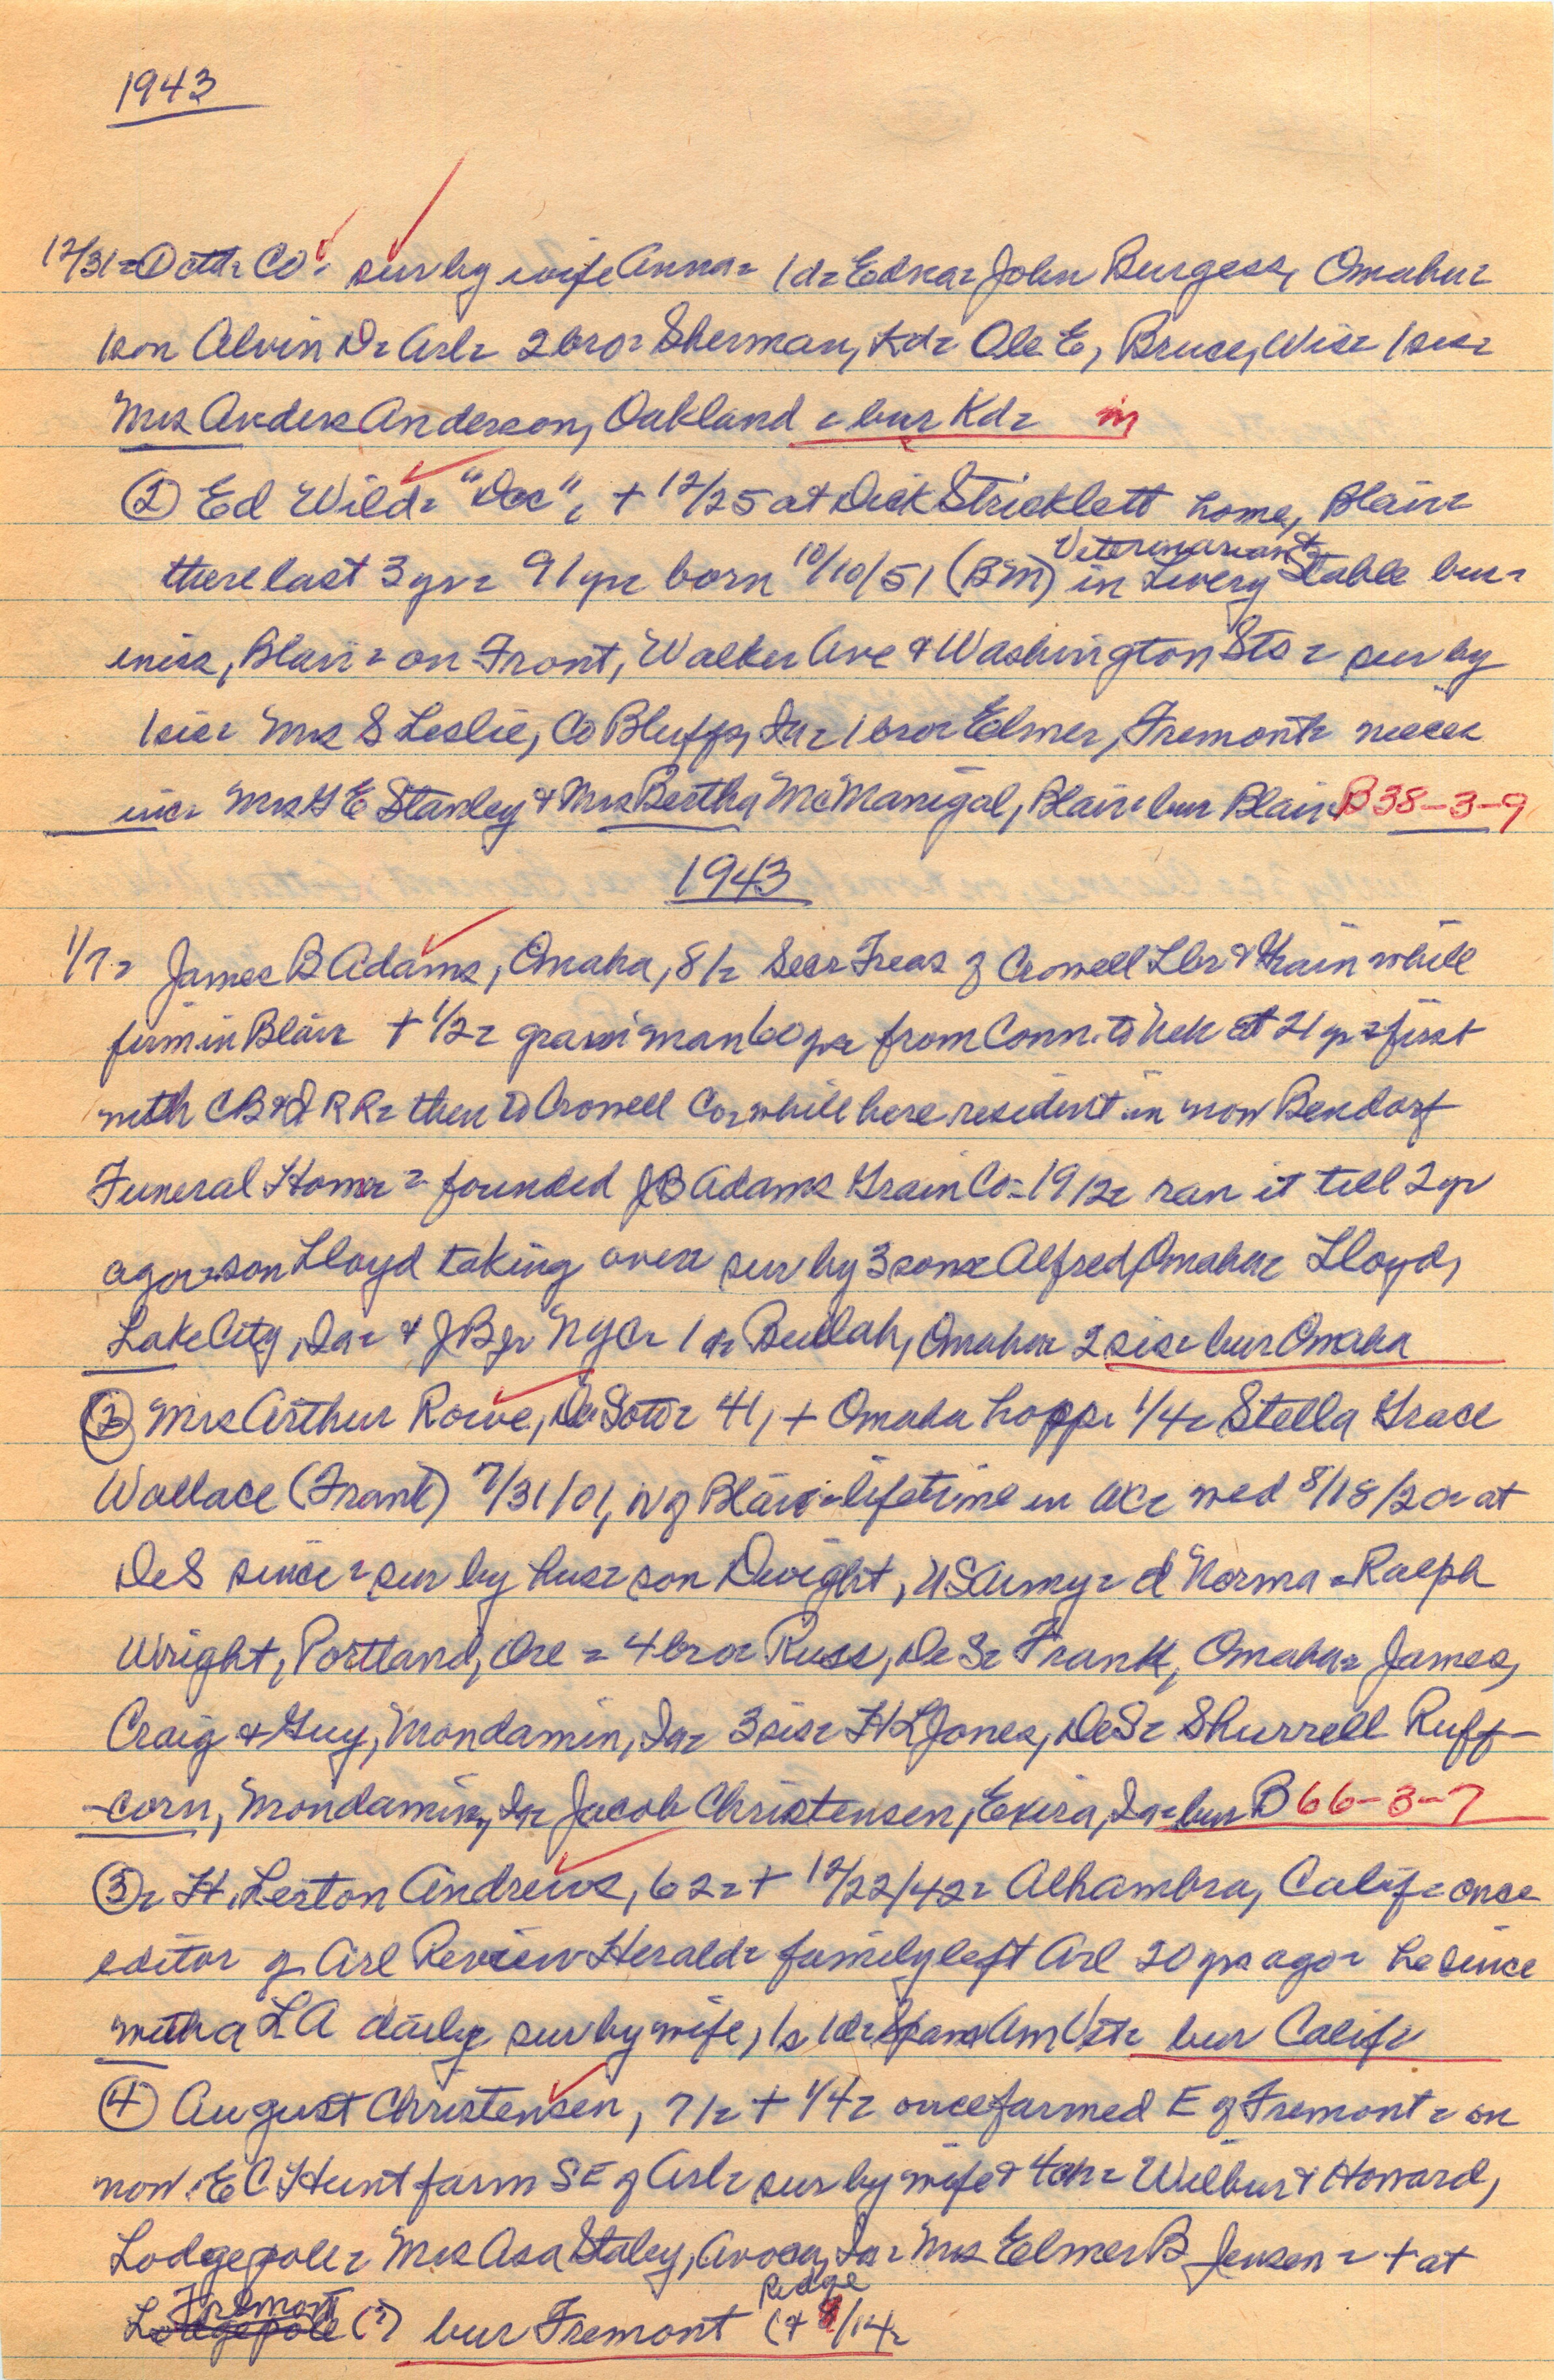 1943
12/31 = Octtr Co. sur by wife Anna = 1 d = Edna = John Burgess, Omaha =
1 son Alvin D = Arl = 2 bro = Sherman, Kd = Ole E, Bruce, Wis = 1 sis =
Mrs Anders Anderson, Oakland = bur Kd = in
② Ed Wild = "Doc", + 12/25 at Dick Stricklett home, Blair =
there last 3 yr = 91 yr born 10/10/51 (BM) in Livery Stable bus-
Veterinarian &
iness, Blair = on Front, Walker Ave & Washington Sts = sur by
1 sis = Mrs S Leslie, Co Bluffs, Ia = 1 bro = Elmer, Fremont = nieces
inc = Mrs G E Stanley & Mrs Bertha McManigal, Blair = bur Blair B 38-3-9
1943
1/7 = James B Adams, Omaha, 81 = Sec = Treas of Crowell Lbr & Grain while
firm in Blair + 1/2 = grain man 60 yrs from Conn. to Neb at 21 yr = first
with CB&Q RR = then to Crowell Co = while here resident in now Bendorf
Funeral Home = founded JB Adams Grain Co = 1912 = ran it till 2 yr
ago = son Lloyd taking over = sur by 3 sons = Alfred, Omaha = Lloyd,
Lake City, Ia = & J B Jr NYC = 1 d = Beulah, Omaha = 2 sis = bur Omaha
② Mrs Arthur Rowe, De Soto = 41, + Omaha hosp = 1/4 = Stella Grace
Wallace (Frank) 7/31/01, N of Blair = lifetime in WC = wed 8/18/20 = at
DeS since = sur by hus = son Dwight, US Army = d Norma = Ralph
Wright, Portland, Ore = 4 bro = Russ, DeS = Frank, Omaha = James,
Craig & Guy, Mondamin, Ia = 3 sis = H L Jones, DeS = Shurrell Ruff-
-corn, Mondamin, Ia = Jacob Christensen, Exira, Ia = bur B 66-3-7
③ = H. Lerton Andrews, 62 = + 12/22/42 = Alhambra, Calif = once
editor of Arl Review Herald = family left Arl 20 yrs ago = he since
with a LA daily sur by wife, 1 s 1 d = Span Am Vet = bur Calif =
④ August Christensen, 71 = + 1/4 = once farmed E of Fremont = on
now E C Hunt farm SE of Arl = sur by wife & 4 ch = Wilbur & Howard,
Lodgepole = Mrs Asa Staley, Avoca, Ia = Mrs Elmer B Jensen = + at
Fremont Ridge
Lodgepole (?) bur Fremont (& /14 =